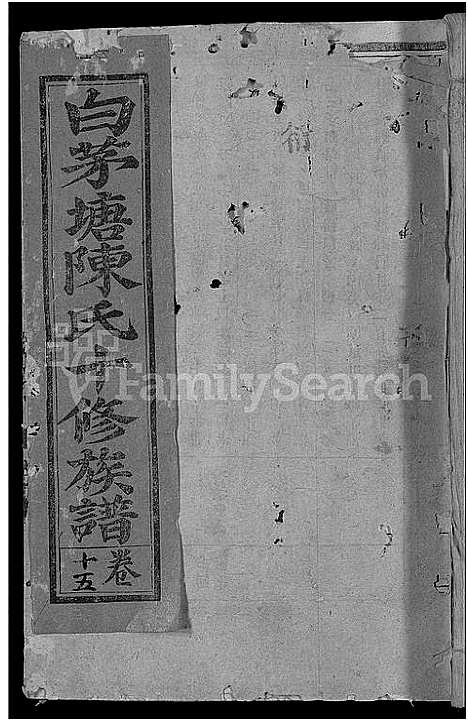 白茅塘陳氏十修族譜
卷十五
FamilySearch